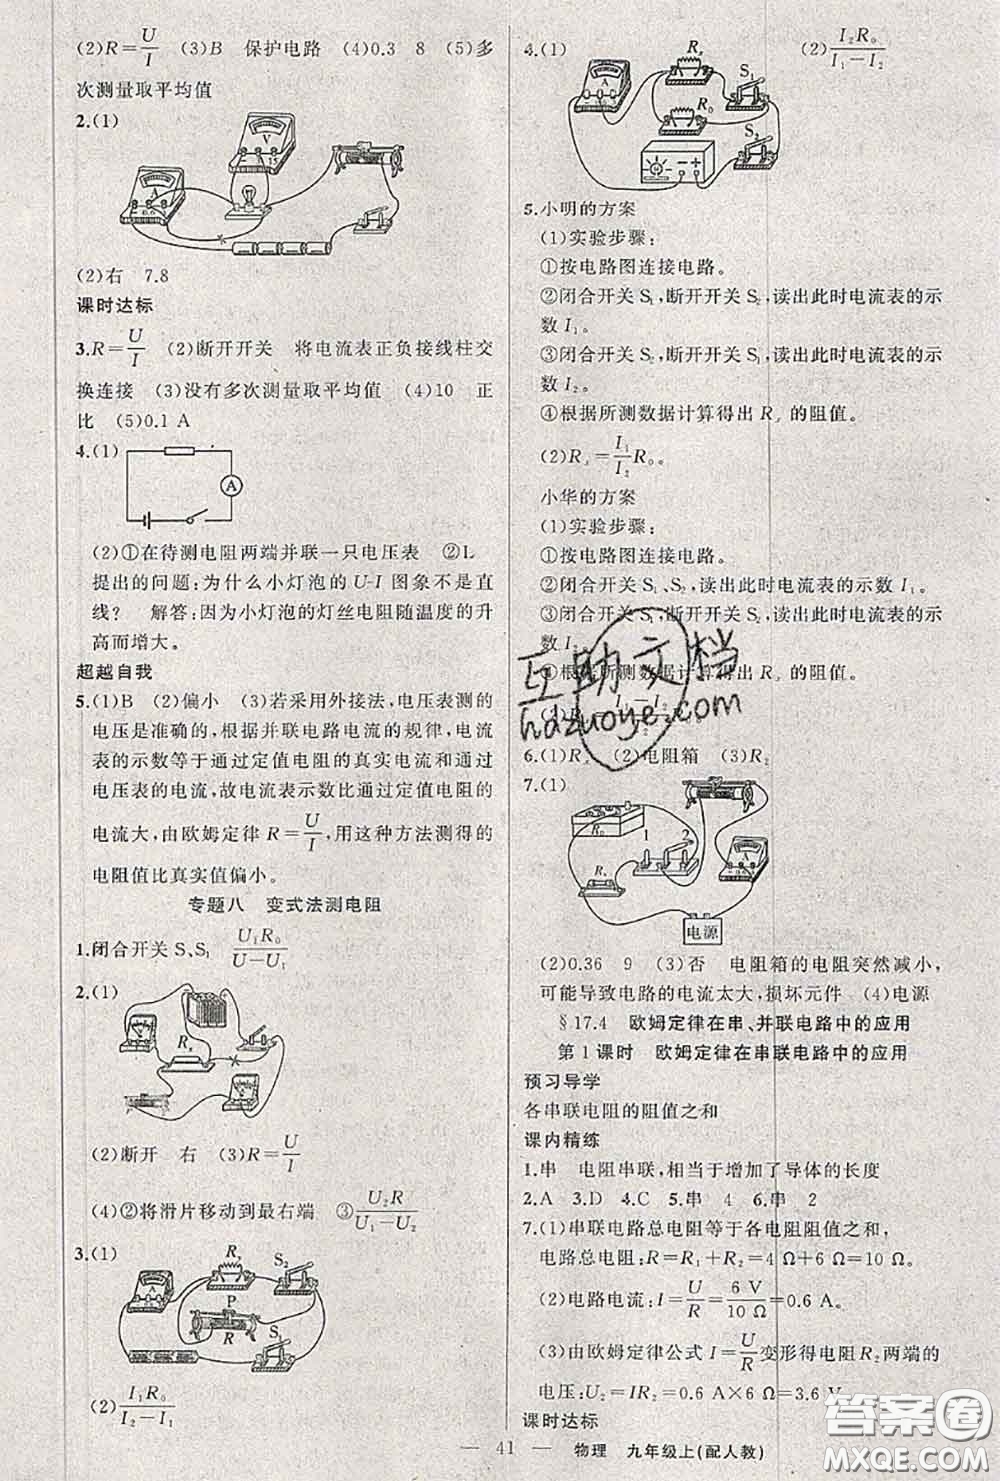 (2)R=U/I (3)B 保护电路 (4)0.3 8 (5)多
次测量取平均值
2.(1)
V
A
0.6
(2)右 7.8
课时达标
3.R=U/I (2)断开开关 将电流表正负接线柱交
换连接 (3)没有多次测量取平均值 (4)10 正
比 (5)0.1 A
4.(1)
A
(2)①在待测电阻两端并联一只电压表 ②L
提出的问题:为什么小灯泡的U-I图象不是直
线? 解答:因为小灯泡的灯丝电阻随温度的升
高而增大。
超越自我
5.(1)B (2)偏小 (3)若采用外接法,电压表测的
电压是准确的,根据并联电路电流的规律,电流
表的示数等于通过定值电阻的真实电流和通过
电压表的电流,故电流表示数比通过定值电阻的
电流大,由欧姆定律R=U/I,用这种方法测得的
电阻值比真实值偏小。
专题八 变式法测电阻
1.闭合开关S、S₁ U₁R₀/(U-U₁)
2.(1)
Rₓ
(2)断开 右 (3)R=U/I
(4)②将滑片移动到最右端 ③U₂R/(U₁-U₂)
3.(1)
Rₓ
S₂
A
P
R
S₁
(2)I₁R₀/(I₂-I₁)
4.(1)
Rₓ
S₁
A
R₀
S₂
(2)I₂R₀/(I₁-I₂)
5.小明的方案
(1)实验步骤:
①按电路图连接电路。
②闭合开关S₁,断开开关S₂,读出此时电流表的示
数I₁。
③闭合开关S₂,断开开关S₁,读出此时电流表的示
数I₂。
④根据所测数据计算得出Rₓ的阻值。
(2)Rₓ=I₁/I₂R₀。
小华的方案
(1)实验步骤:
①按电路图连接电路。
②闭合开关S₁、S₂,读出此时电流表的示数I₁。
③闭合开关S₁,断开开关S₂,读出此时电流表的示
数I₂。
④根据所测数据计算得出Rₓ的阻值。
互助文档
hdzuoye.com
6.(1)Rₓ (2)电阻箱 (3)R₂
7.(1)
R₀
1
2
Rₓ
电源
(2)0.36 9 (3)否 电阻箱的电阻突然减小,
可能导致电路的电流太大,损坏元件 (4)电源
§17.4 欧姆定律在串、并联电路中的应用
第1课时 欧姆定律在串联电路中的应用
预习导学
各串联电阻的阻值之和
课内精练
1.串 电阻串联,相当于增加了导体的长度
2.A 3.D 4.C 5.串 4 6.串 2
7.(1)串联电路总电阻等于各电阻阻值之和,
电路总电阻:R=R₁+R₂=4 Ω+6 Ω=10 Ω。
(2)电路电流:I=U/R=6 V/10 Ω=0.6 A。
(3)由欧姆定律公式I=U/R变形得电阻R₂两端的
电压:U₂=IR₂=0.6 A×6 Ω=3.6 V。
课时达标
— 41 — 物理 九年级上(配人教)
答案圈
MXQE.COM